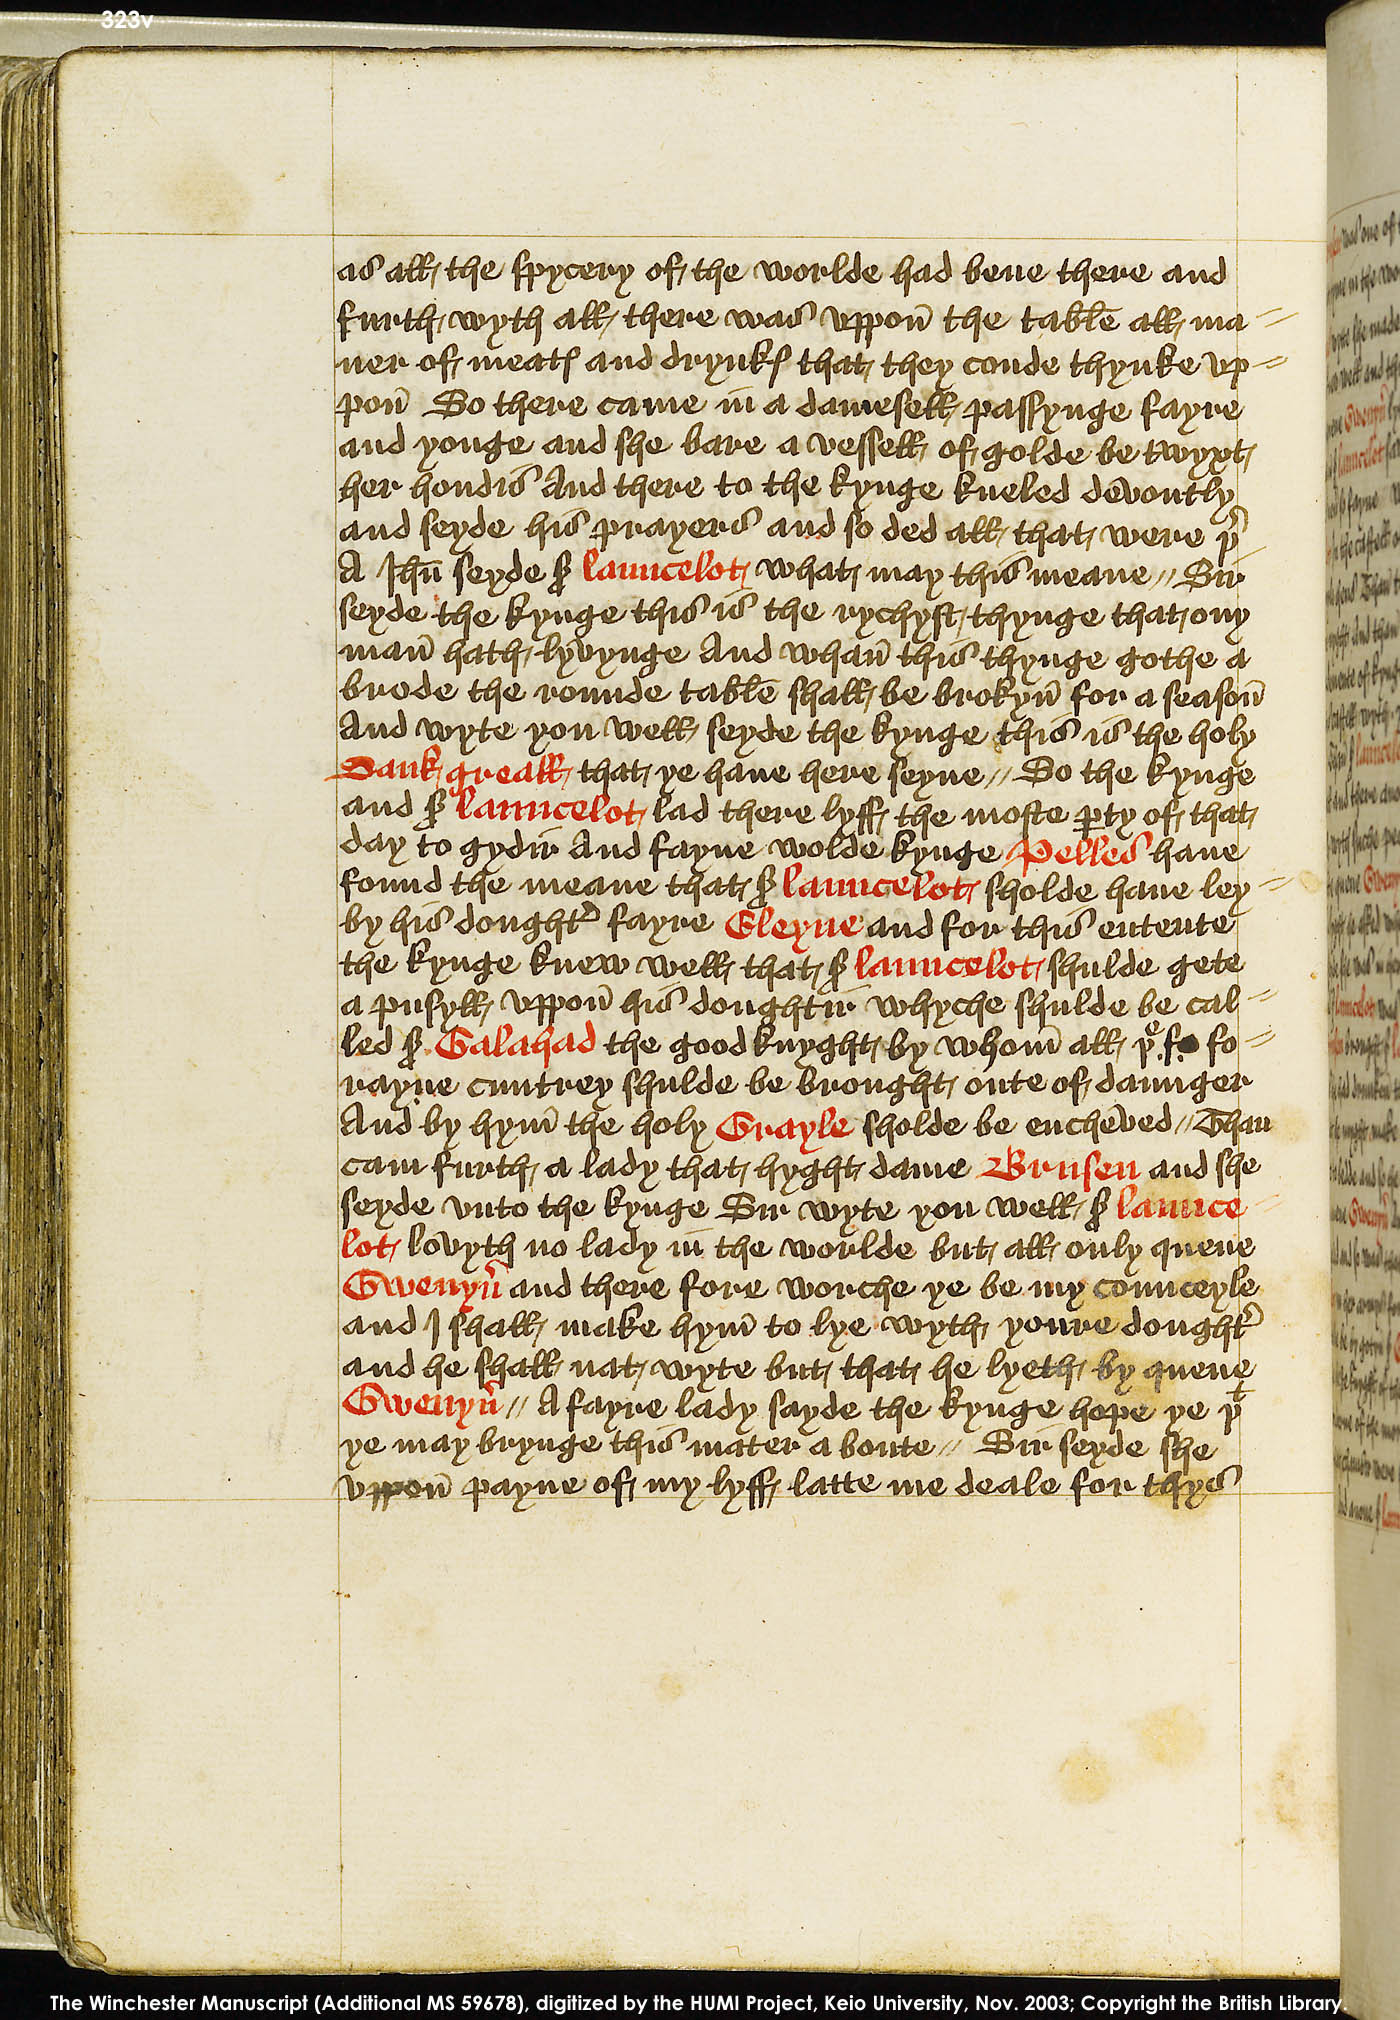 323v
as all the spycery of the worlde had bene there and
furth wyth all there was vppon̄ the table all ma⸗
ner of meatꝭ and drynkꝭ that they coude thynke vp⸗
pon̄ So there came in a damesell passynge fayre
and yonge and she bare a vessell of golde be twyxt
her hondis And there to the kynge kneled devoutly
and seyde his prayers and so ded all that were þr
A Jhū seyde sr launcelot what may this meane // Sir
seyde the kynge this is the rychyst thynge that ony
man̄ hath lyvynge And whan̄ this thynge gothe a
brode the rounde table shall be brokyn̄ for a season̄
And wyte you well seyde the kynge this is the holy
Sank greall that ye haue here seyne // So the kynge
and sr launcelot lad there lyff the moste ꝑty of that
day to gydir And fayne wolde kynge Pelles haue
found the meane that sr launcelot sholde haue ley⸗
by his doughtr fayre Eleyne and for this entente
the kynge knew well that sr launcelot shulde gete
a pusyll vppon̄ his doughtir whyche shulde be cal⸗
led sr Galahad the good knyght by whom̄ all þe fo⸗
rayne cuntrey shulde be brought oute of daunger
And by hym̄ the holy Grayle sholde be encheved // Than
cam furth a lady that hyght dame Brusen and she
seyde vnto the kynge Sir wyte you well sr launce⸗
lot lovyth no lady in the worlde but all only quene
Gwenyū and there fore worche ye be my counceyle
and I shall make hym̄ to lye wyth youre doughtr
and he shall nat wyte but that he lyeth by quene
Gwenyū // A fayre lady sayde the kynge hope ye þt
ye may brynge this mater a boute // Sir seyde she
vppon̄ payne of my lyff latte me deale for thys
The Winchester Manuscript (Additional MS 59678), digitized by the HUMI Project, Keio University, Nov. 2003; Copyright the British Library.